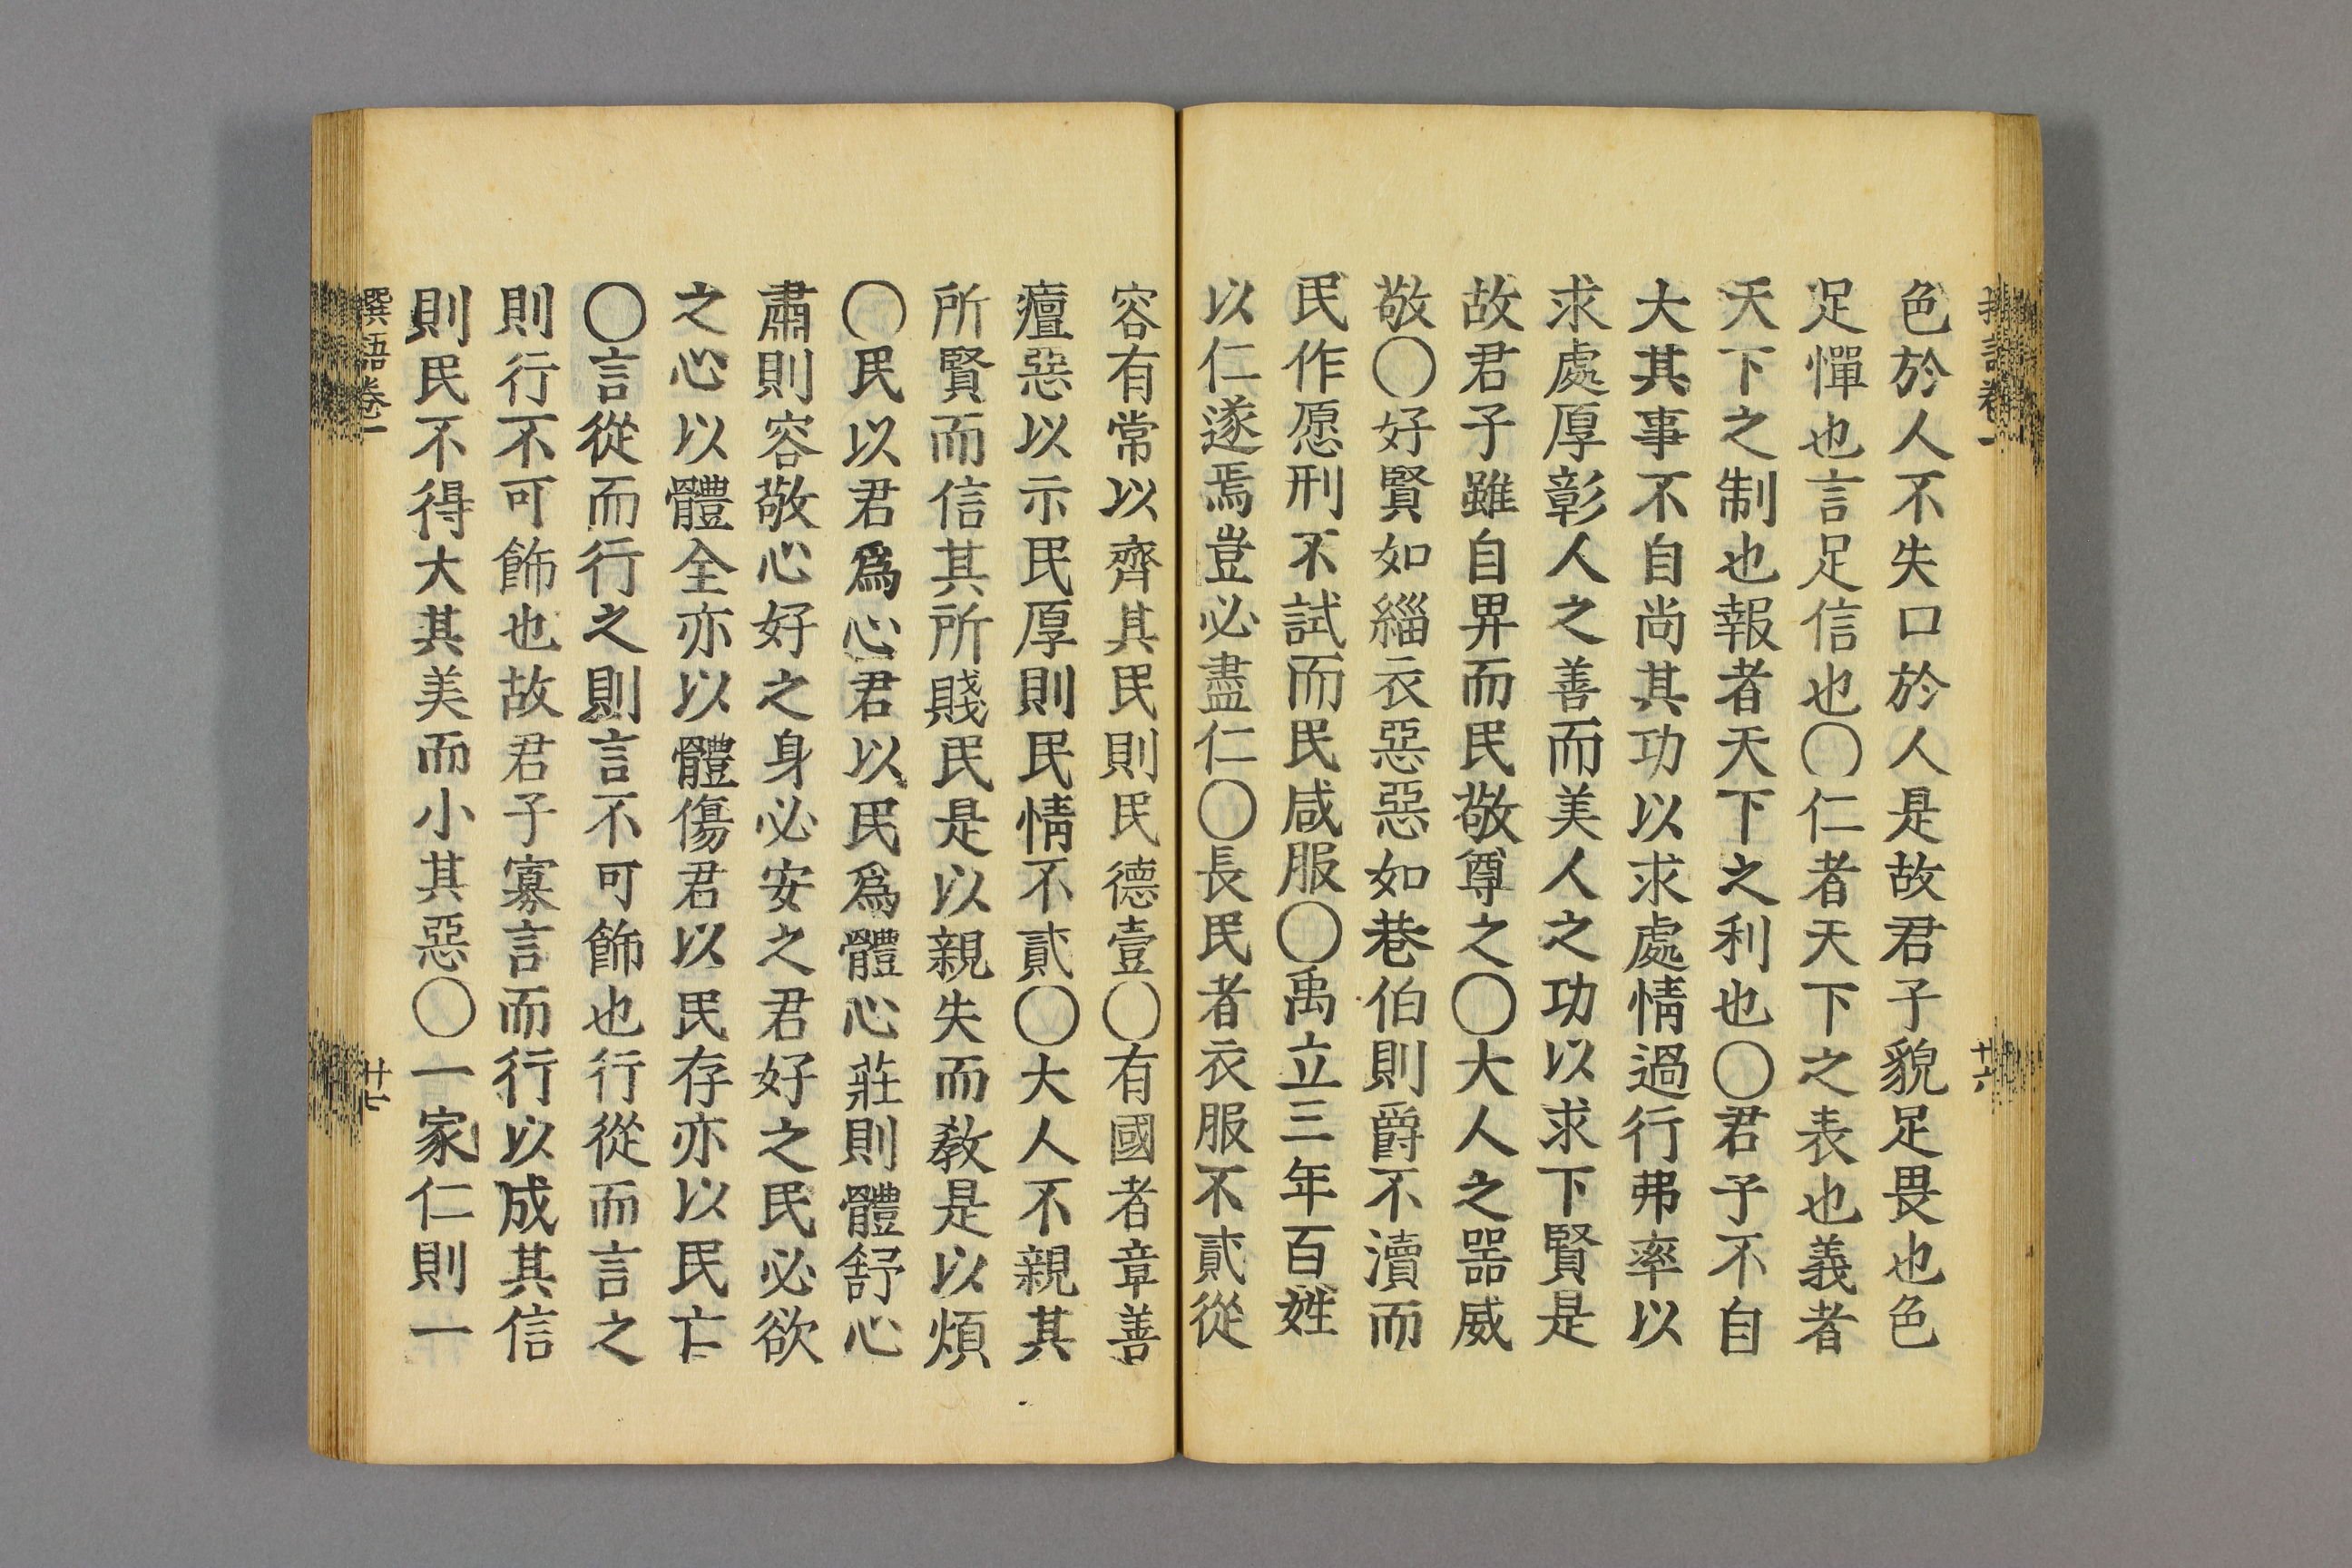 色於人不失口於人是故君子貌足畏也色
足憚也言足信也〇仁者天下之表也義者
天下之制也報者天下之利也〇君子不自
大其事不自尚其功以求處情過行弗率以
求處厚彰人之善而美人之功以求下賢是
故君子雖自畀而民敬尊之〇大人之器威
敬〇好賢如緇衣惡惡如巷伯則爵不瀆而
民作愿刑不試而民咸服〇禹立三年百姓
以仁遂焉豈必盡仁〇長民者衣服不貳從
容有常以齊其民則民德壹〇有國者章善
癉惡以示民厚則民情不貳〇大人不親其
所賢而信其所賤民是以親失而教是以煩
〇民以君爲心君以民爲體心莊則體舒心
肅則容敬心好之身必安之君好之民必欲
之心以體全亦以體傷君以民存亦以民亡
〇言從而行之則言不可飾也行從而言之
則行不可飾也故君子寡言而行以成其信
則民不得大其美而小其惡〇一家仁則一
撰語卷一
廿七